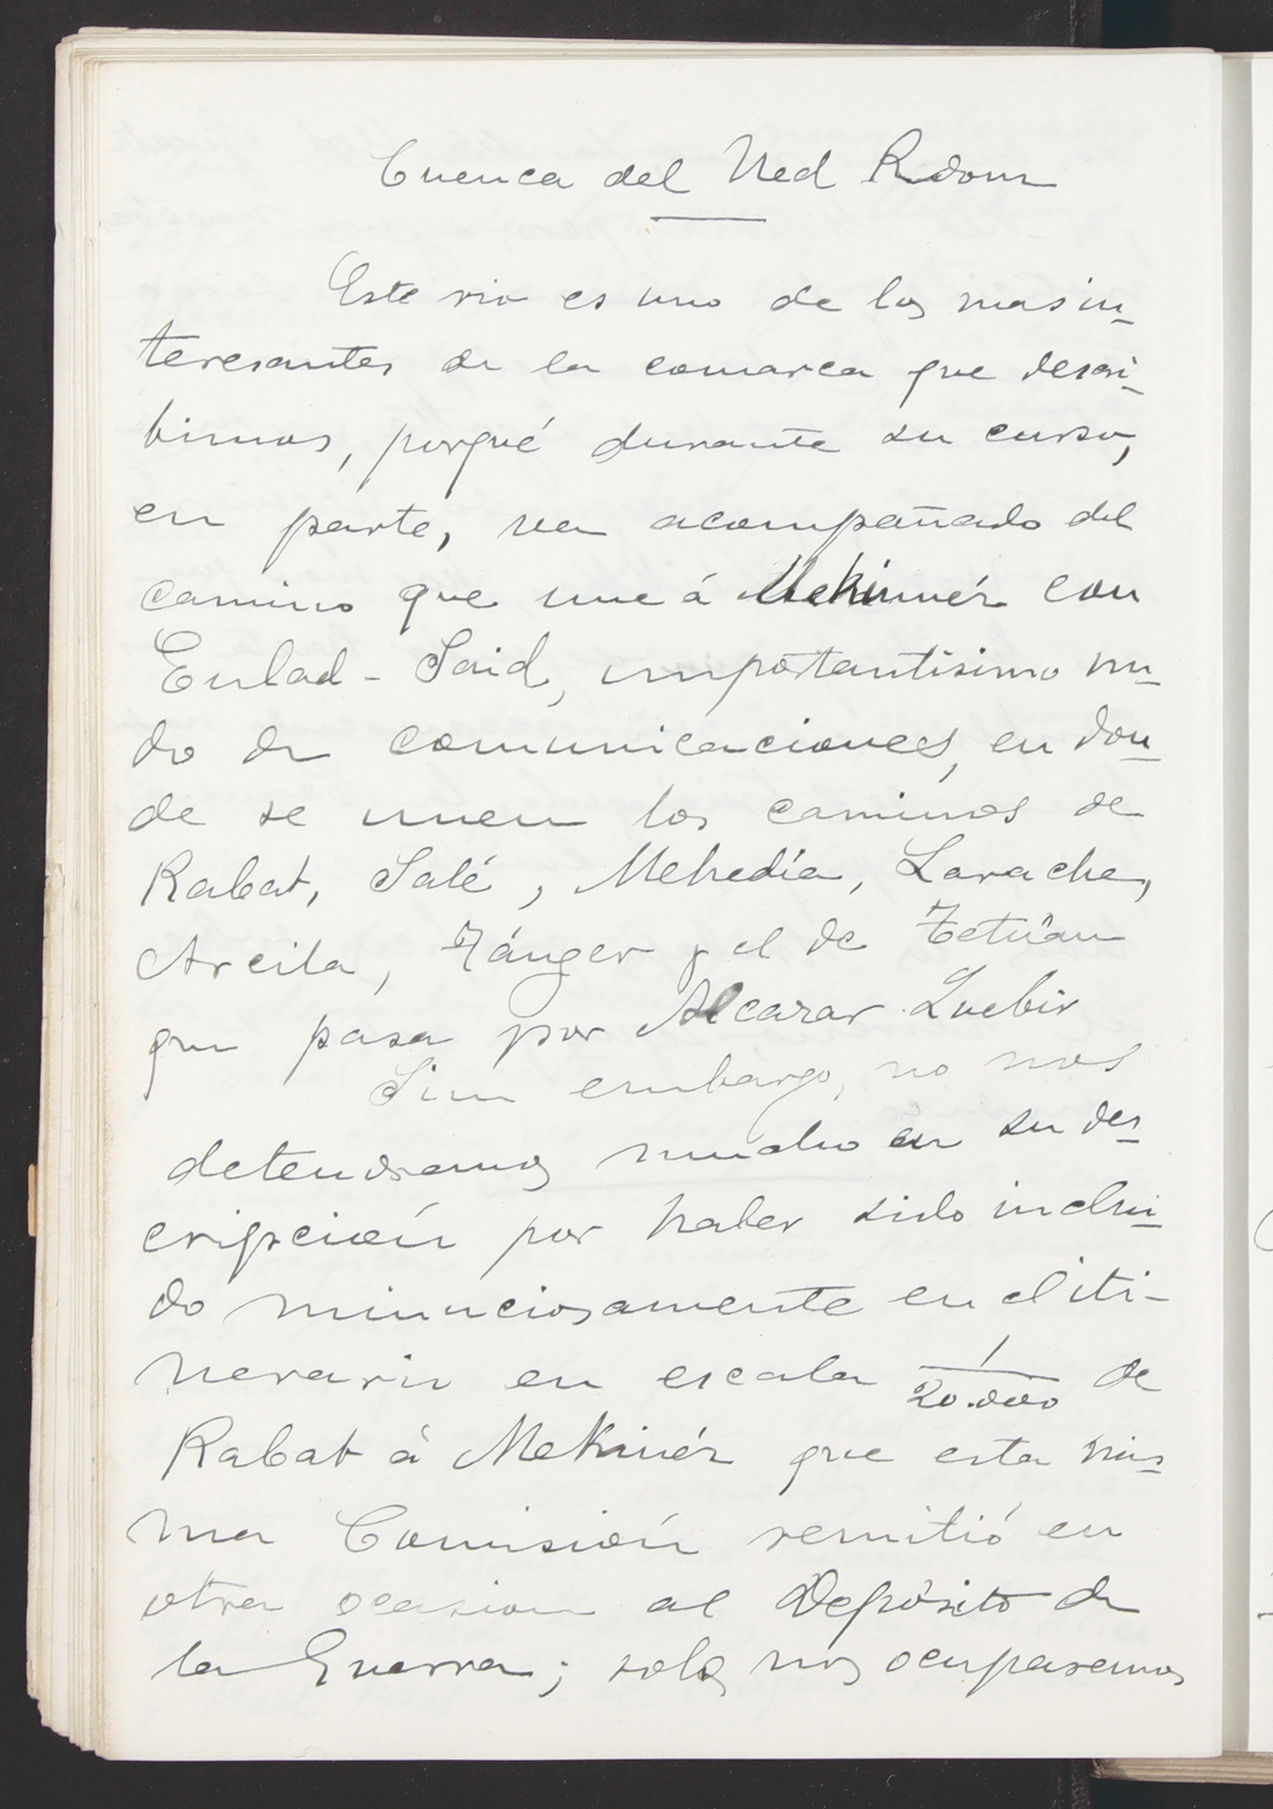 Cuenca del Ued Rdom
Este rio es uno de los mas in-
teresantes de la comarca que descri-
bimos, porqué durante su curso,
en parte, va acompañado del
camino que une á Mekinés con
Eulad-Said, importantisimo nu-
do de comunicaciones, en don-
de se unen los caminos de
Rabat, Salé, Mehedía, Larache,
Arcila, Tánger y el de Tetúan
que pasa por Alcazar Quebir
Sin embargo, no nos
detendremos mucho en su des-
cripción por haber sido inclui-
do minunciosamente en el iti-
nerario en escala 1/20.000 de
Rabat á Mekinés que esta mis-
ma Comisión remitió en
otra ocasion al Depósito de
la Guerra; solo nos ocuparemos